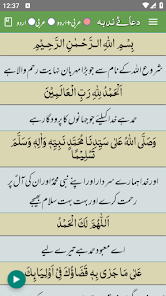 12:37
دعائے ندبہ عربی+اردو عربی اردو
بِسْمِ اللهِ الرَّحْمٰنِ الرَّحِيْمِ
شروع اللہ کے نام سے جو بڑا مہربان نہایت رحم والا ہے
اَلْحَمْدُ لِلّٰهِ رَبِّ الْعَالَمِيْنَ
حمد ہے خدا کیلئے جو جہانوں کا پروردگار ہے
وَصَلَّى اللهُ عَلٰى سَيِّدِنَا مُحَمَّدٍ نَبِيِّهٖ وَاٰلِهٖ وَسَلَّمَ
تَسْلِيْمًا
اور خدا ہمارے سردار اور اپنے نبی محمدؐ اور ان کی آلؑ پر
رحمت کرے اور بہت بہت سلام بھیجے
اَللّٰهُمَّ لَكَ الْحَمْدُ
اے معبود حمد ہے تیرے لیے
عَلٰى مَا جَرٰى بِهٖ قَضَاؤُكَ فِيْ اَوْلِيَائِكَ